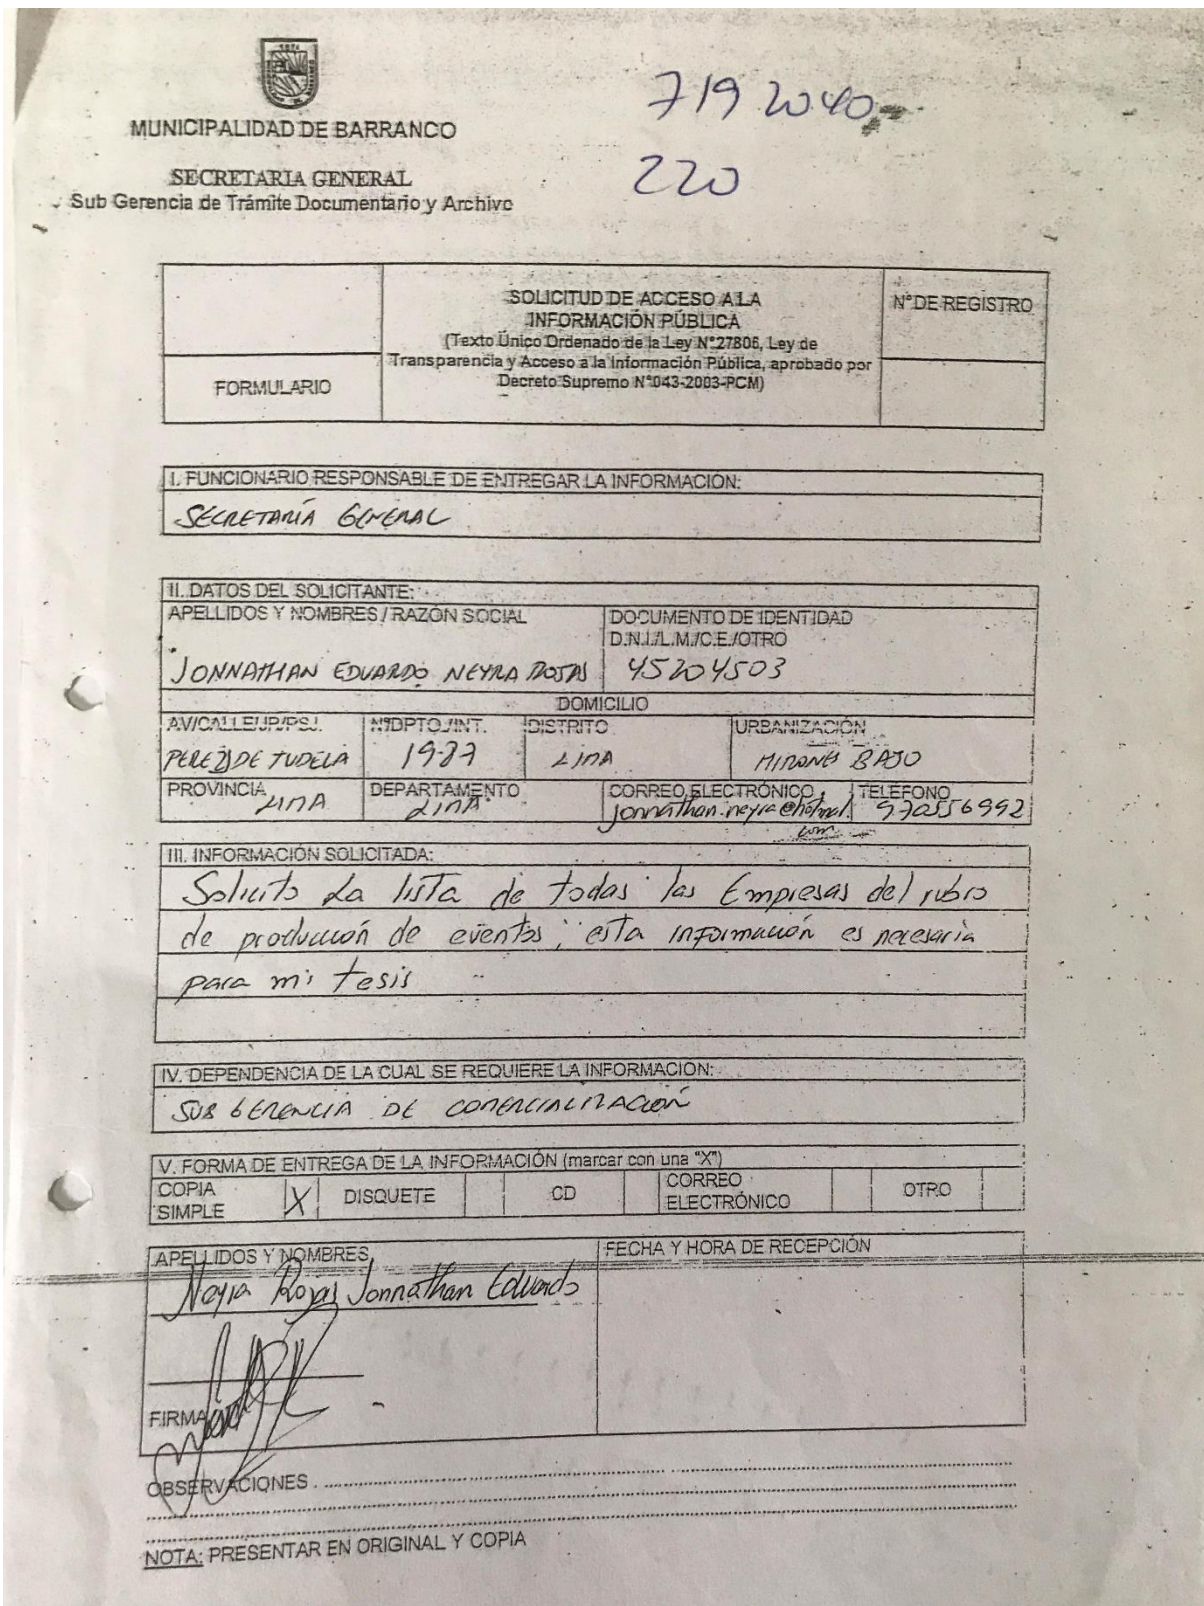 MUNICIPALIDAD DE BARRANCO
719 2040
220
SECRETARIA GENERAL
Sub Gerencia de Trámite Documentario y Archivo
FORMULARIO
SOLICITUD DE ACCESO A LA
INFORMACIÓN PÚBLICA
(Texto Único Ordenado de la Ley N°27806, Ley de
Transparencia y Acceso a la Información Pública, aprobado por
Decreto Supremo N°043-2003-PCM)
N° DE REGISTRO
I. FUNCIONARIO RESPONSABLE DE ENTREGAR LA INFORMACIÓN:
SECRETARÍA GENERAL
II. DATOS DEL SOLICITANTE:
APELLIDOS Y NOMBRES / RAZÓN SOCIAL
DOCUMENTO DE IDENTIDAD
D.N.I./L.M./C.E./OTRO
JONNATHAN EDUARDO NEYRA ROJAS
45204503
DOMICILIO
AV/CALLE/JR/PSJ. N°/DPTO./INT. DISTRITO URBANIZACIÓN
PEREZ DE TUDELA 19-87 LIMA MIRONES BAJO
PROVINCIA LIMA
DEPARTAMENTO LIMA
CORREO ELECTRÓNICO jonnathan.neyra@hotmail.com
TELÉFONO 970556992
III. INFORMACIÓN SOLICITADA:
Solicito La lista de todas las Empresas del rubro
de producción de eventos, esta información es necesaria
para mi tesis
IV. DEPENDENCIA DE LA CUAL SE REQUIERE LA INFORMACIÓN:
SUB GERENCIA DE COMERCIALIZACIÓN
V. FORMA DE ENTREGA DE LA INFORMACIÓN (marcar con una "X")
COPIA SIMPLE X DISQUETE CD CORREO ELECTRÓNICO OTRO
APELLIDOS Y NOMBRES
FECHA Y HORA DE RECEPCIÓN
Neyra Rojas Jonnathan Eduardo
FIRMA
OBSERVACIONES
NOTA: PRESENTAR EN ORIGINAL Y COPIA